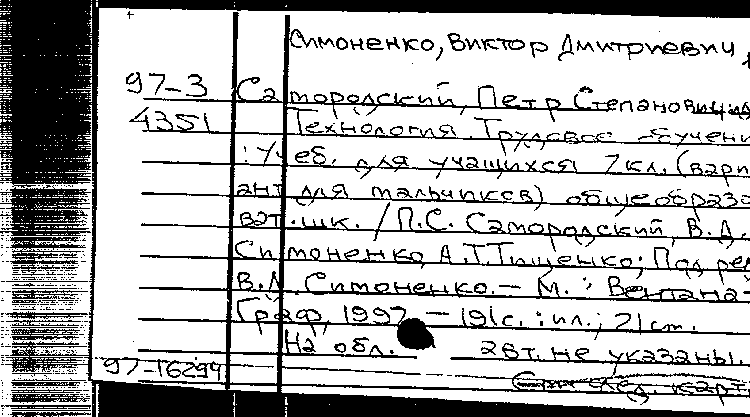 Симоненко, Виктор Дмитриевич
97-3 Самородский, Петр Степанович
4351 Технология. Трудовое обучени
: Учеб. для учащихся 7 кл. (вари
ант для мальчиков) общеобразо
ват. шк. / П.С. Самородский, В.Д.
Симоненко, А.Т. Тищенко; Под ред
В.Д. Симоненко. – М. : Вентана-
Граф, 1997. – 191 с. : ил.; 21 см.
На обл. авт. не указаны.
97-16294 след. карт.